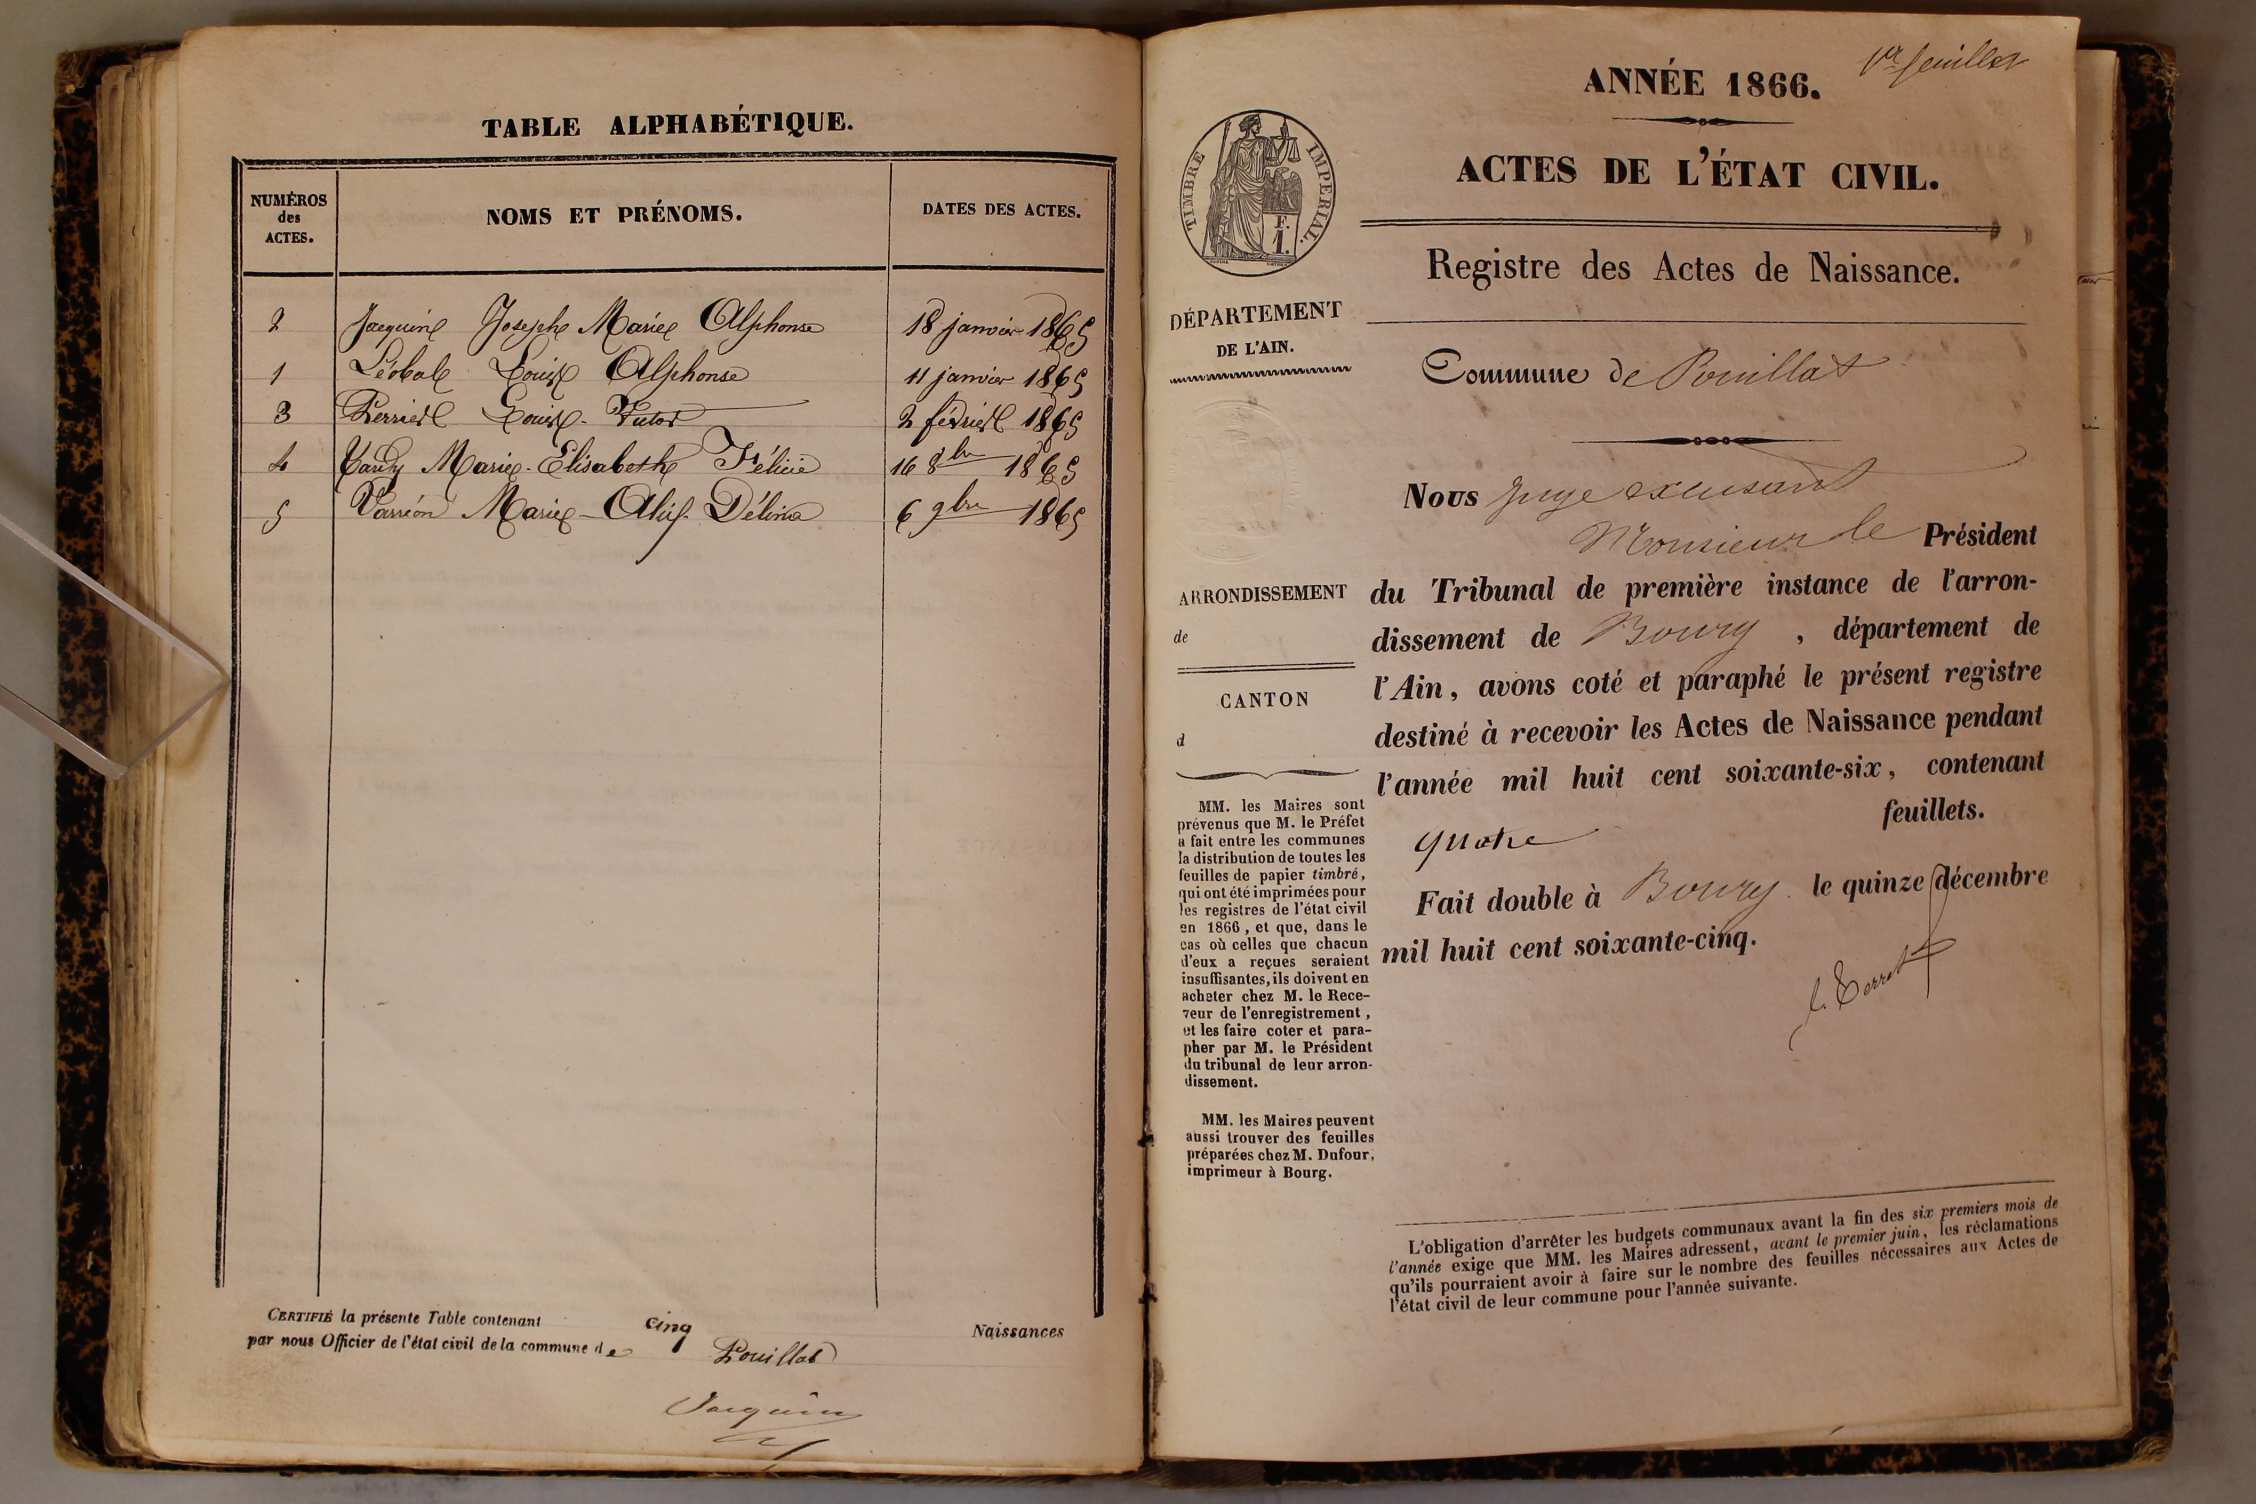 TABLE ALPHABÉTIQUE.
NUMÉROS
des
ACTES.
NOMS ET PRÉNOMS.
DATES DES ACTES.
2 Jacquin Joseph Marie Alphonse 18 janvier 1865
1 Léobal Louis Alphonse 11 janvier 1865
3 Perrier Louis 2 février 1865
4 Marie-Elisabeth Félicie 16 8bre 1865
5 Marie-Alix Délina 6 9bre 1865
CERTIFIÉ la présente Table contenant cinq Naissances
par nous Officier de l'état civil de la commune de Pouillat
Jacquin
1er feuillet
ANNÉE 1866.
ACTES DE L'ÉTAT CIVIL.
Registre des Actes de Naissance.
TIMBRE IMPERIAL.
F.
1.
DÉPARTEMENT
DE L'AIN.
Commune de Pouillat
Nous Juge excusant
Monsieur le Président
du Tribunal de première instance de l'arron-
dissement de Bourg, département de
l'Ain, avons coté et paraphé le présent registre
destiné à recevoir les Actes de Naissance pendant
l'année mil huit cent soixante-six, contenant
quatre feuillets.
Fait double à Bourg le quinze décembre
mil huit cent soixante-cinq.
ARRONDISSEMENT
de
CANTON
d
MM. les Maires sont
prévenus que M. le Préfet
a fait entre les communes
la distribution de toutes les
feuilles de papier timbré,
qui ont été imprimées pour
les registres de l'état civil
en 1866, et que, dans le
cas où celles que chacun
d'eux a reçues seraient
insuffisantes, ils doivent en
acheter chez M. le Rece-
veur de l'enregistrement,
et les faire coter et para-
pher par M. le Président
du tribunal de leur arron-
dissement.
MM. les Maires peuvent
aussi trouver des feuilles
préparées chez M. Dufour,
imprimeur à Bourg.
L'obligation d'arrêter les budgets communaux avant la fin des six premiers mois de
l'année exige que MM. les Maires adressent, avant le premier juin, les réclamations
qu'ils pourraient avoir à faire sur le nombre des feuilles nécessaires aux Actes de
l'état civil de leur commune pour l'année suivante.